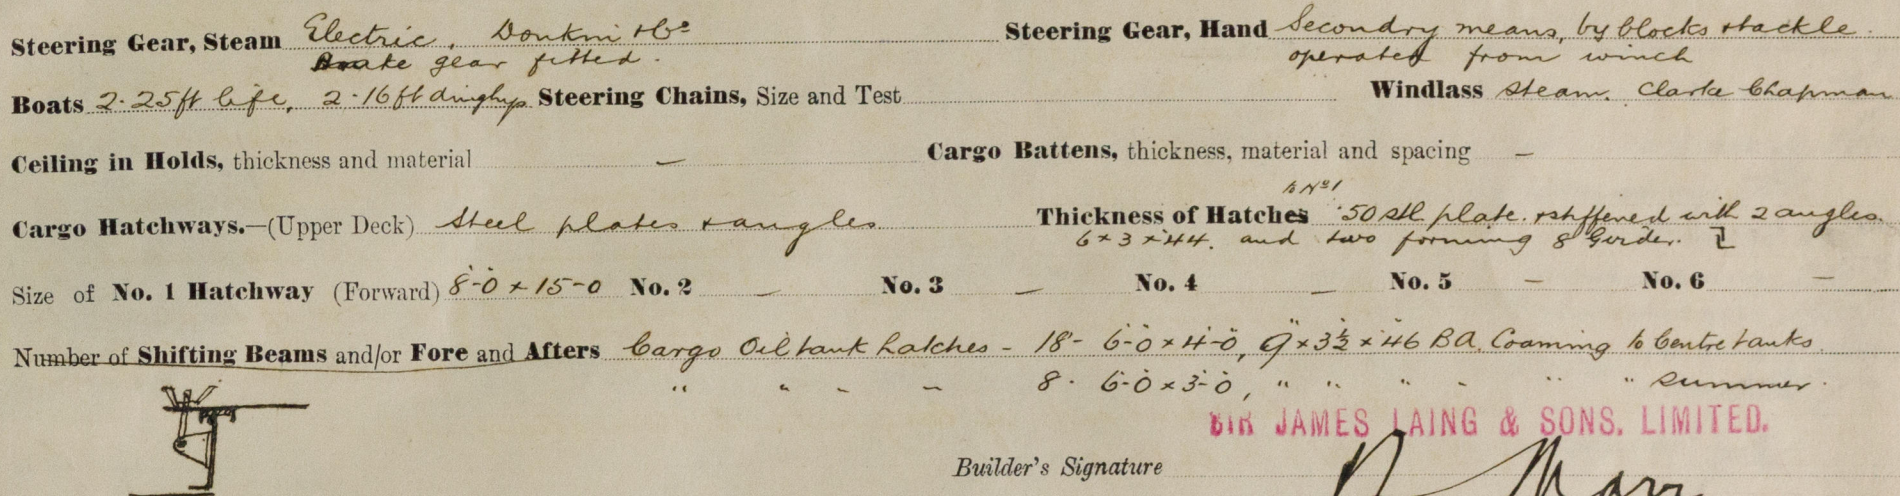 Steering Gear, Steam Electric, Donkin & Co Steering Gear, Hand Secondry means, by blocks & tackle.
Brake gear fitted. operated from winch
Boats 2-25ft life, 2-16ft dinghys Steering Chains, Size and Test Windlass steam. Clarke Chapman
Ceiling in Holds, thickness and material — Cargo Battens, thickness, material and spacing —
to No 1
Cargo Hatchways.—(Upper Deck) Steel plates & angles Thickness of Hatches .50 stl. plate. stiffened with 2 angles.
6 x 3 x .44. and two forming 8 Girder.
Size of No. 1 Hatchway (Forward) 8'-0" x 15'-0 No. 2 — No. 3 — No. 4 — No. 5 — No. 6 —
Number of Shifting Beams and/or Fore and Afters Cargo Oil tank hatches - 18 - 6'-0" x 4'-0", 9" x 3½" x .46 BA. Coaming to Centre tanks.
" " " " 8 - 6'-0" x 3'-0", " " " " " " summer.
SIR JAMES LAING & SONS. LIMITED.
Builder's Signature